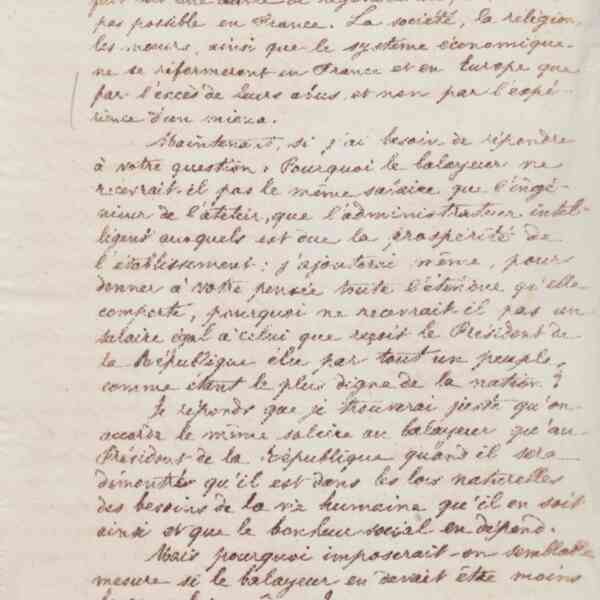 pas possible en France. La société, la religion,
les mœurs, ainsi que le système économique
ne se réformeront en France et en Europe que
par l'excès de leurs abus et non par l'expé-
rience d'un mieux.
Maintenant, si j'ai besoin de répondre
à votre question : Pourquoi le balayeur ne
recevrait-il pas le même salaire que l'ingé-
nieur de l'atelier, que l'administrateur intel-
ligent auxquels est due la prospérité de
l'établissement ; j'ajouterai même, pour
donner à votre pensée toute l'étendue qu'elle
comporte, pourquoi ne recevrait-il pas un
salaire égal à celui que reçoit le Président de
la République élu par tout un peuple,
comme étant le plus digne de la nation ?
Je réponds que je trouverai juste qu'on
accorde le même salaire au balayeur qu'au
Président de la République quand il sera
démontré qu'il est dans les lois naturelles
des besoins de la vie humaine qu'il en soit
ainsi et que le bonheur social en dépend.
Mais pourquoi imposerait-on semblable
mesure si le balayeur en devait être moins